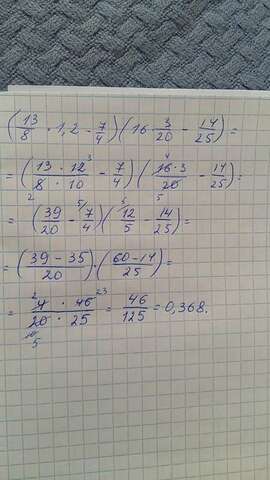 (13/8 · 1,2 - 7/4)(16 · 3/20 - 14/25) =
= (13 · 12 3/8 2 · 10 - 7/4)(16 4 · 3/20 5 - 14/25) =
= (39/20 - 5 7/4)(5 12/5 - 14/25) =
= (39 - 35/20) · (60 - 14/25) =
= 2 4 · 46 23/20 10 5 · 25 = 46/125 = 0,368.